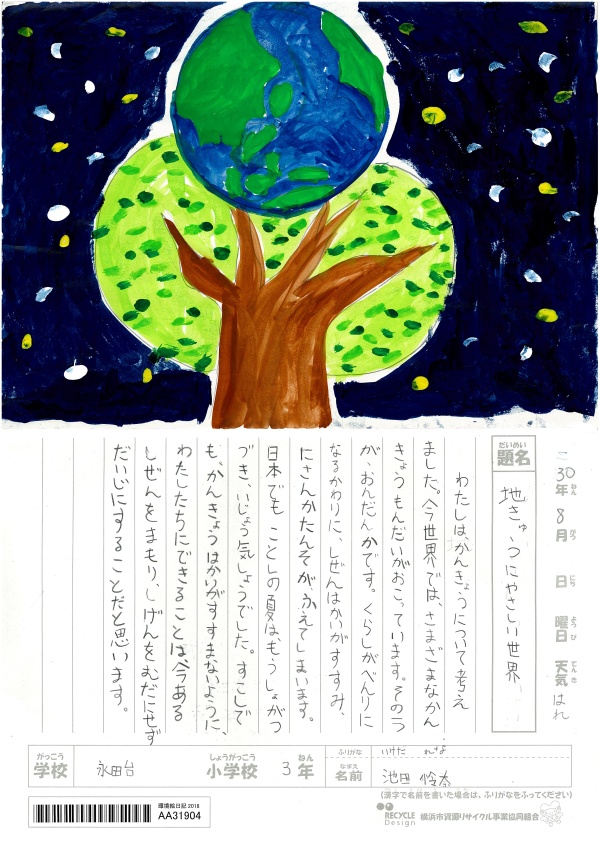 30年 8月 日 曜日 天気 はれ
ねん がつ にち ようび てんき
だいめい
題名
地きゅうにやさしい世界
わたしは、かんきょうについて考え
ました。今世界では、さまざまなかん
きょうもんだいがおこっています。そのうち
が、おんだんかです。くらしがべんりに
なるかわりに、しぜんはかいがすすみ、
にさんかたんそが、ふえてしまいます。
日本でもことしの夏は、もうしょがつ
づき、いじょう気しょうでした。すこしで
も、かんきょうはかいがすすまないように、
わたしたちにできることは今ある
しぜんをまもり、しげんをむだにせず
だいじにすることだと思います。
がっこう
学校
永田台
しょうがっこう
小学校
3
ねん
年
ふりがな
いけだ
なまえ
名前
池田 怜
(漢字で名前を書いた場合は、ふりがなをふってください)
環境絵日記2018
AA31904
RECYCLE
Design
横浜市資源リサイクル事業協同組合